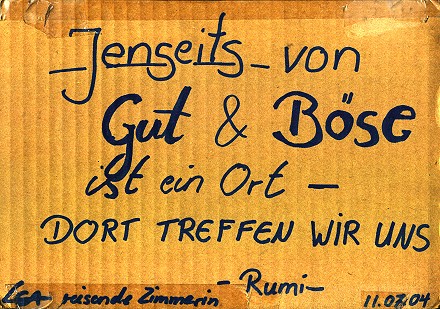 Jenseits von
Gut & Böse
ist ein Ort –
DORT TREFFEN WIR UNS
- Rumi -
LEA reisende Zimmerin 11.07.04